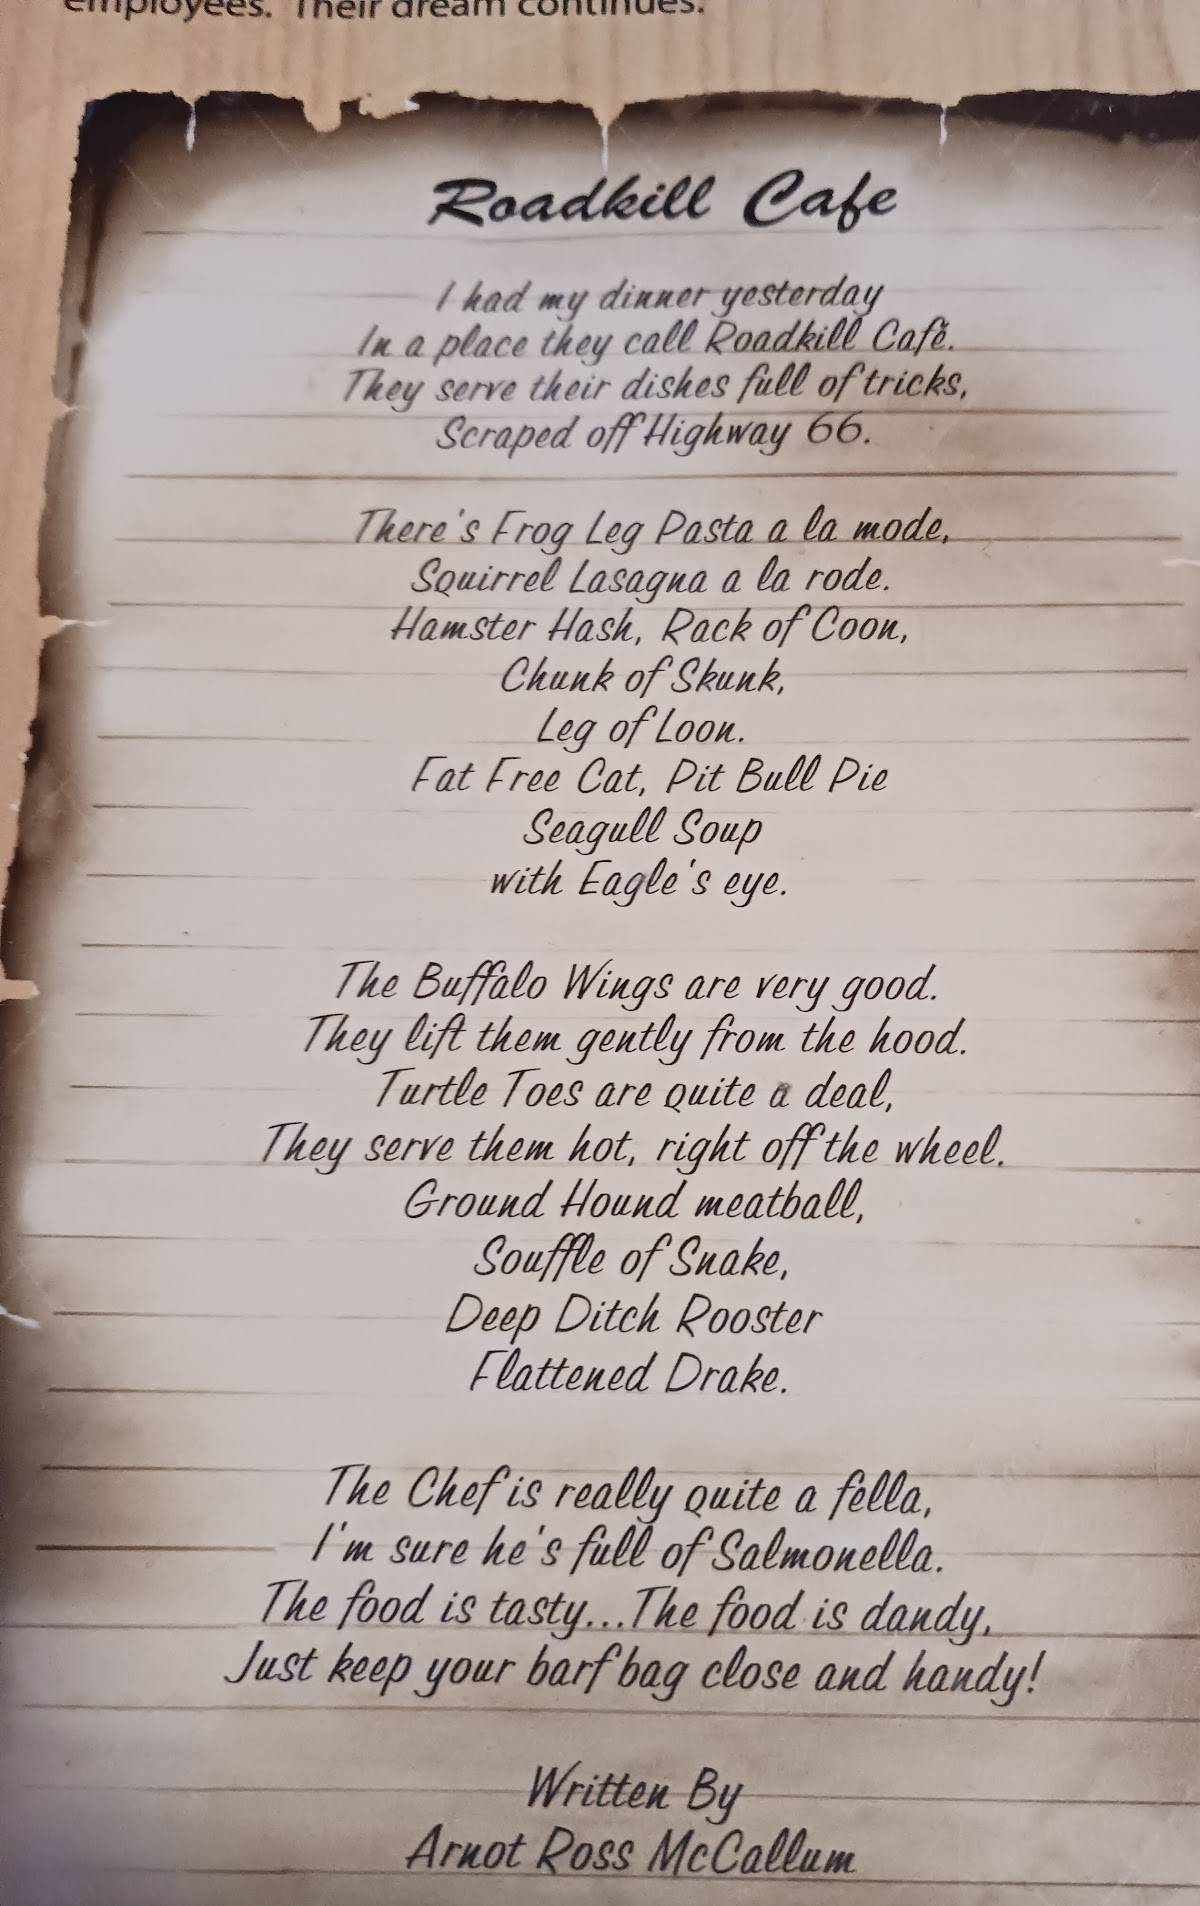 employees. Their dream continues.
Roadkill Cafe
I had my dinner yesterday
In a place they call Roadkill Café.
They serve their dishes full of tricks,
Scraped off Highway 66.
There's Frog Leg Pasta a la mode,
Squirrel Lasagna a la rode.
Hamster Hash, Rack of Coon,
Chunk of Skunk,
Leg of Loon.
Fat Free Cat, Pit Bull Pie
Seagull Soup
with Eagle's eye.
The Buffalo Wings are very good.
They lift them gently from the hood.
Turtle Toes are quite a deal,
They serve them hot, right off the wheel.
Ground Hound meatball,
Souffle of Snake,
Deep Ditch Rooster
Flattened Drake.
The Chef is really quite a fella,
I'm sure he's full of Salmonella.
The food is tasty...The food is dandy,
Just keep your barf bag close and handy!
Written By
Arnot Ross McCallum